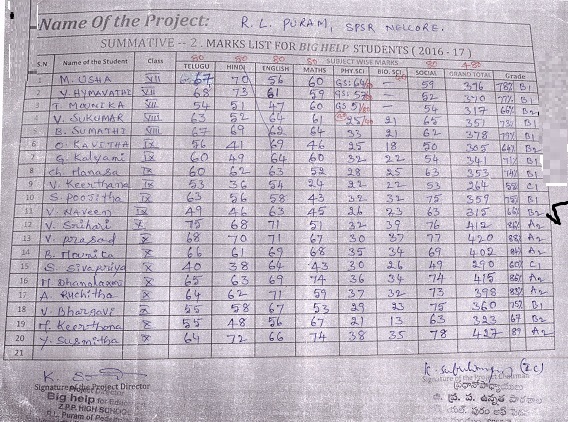 Name Of the Project: R. L. PURAM, SPSR NELLORE.
SUMMATIVE -- 2 . MARKS LIST FOR BIG HELP STUDENTS ( 2016 - 17 )
80 80 80 80 80 480
SUBJECT WISE MARKS
S.N Name of the Student Class TELUGU HINDI ENGLISH MATHS PHY.SCI BIO. SCI SOCIAL GRAND TOTAL Grade
1 M. USHA VII 67 70 56 60 GS: 64 - 59 376 78% B1
2 Y. HYMAVATHI VII 68 73 61 59 GS: 57 - 52 370 77% B1
3 T. MOUNIKA VII 54 51 47 60 GS 51 - 54 317 66% B2
4 V. SUKUMAR VIII 63 52 64 61 25 21 65 351 73% B1
5 B. SUMATHI VIII 67 69 62 64 33 21 62 378 79% B1
6 O. KAVITHA IX 56 41 69 46 25 18 50 305 64% B2
7 G. Kalyani IX 60 49 64 60 32 22 54 341 71% B1
8 Ch. Manasa IX 60 62 63 52 28 25 63 353 74% B1
9 V. Keerthana IX 53 36 54 24 22 22 53 264 55% C1
10 S. POOJITHA IX 63 56 58 43 32 32 75 359 75% B1
11 V. NAVEEN IX 49 46 63 45 26 23 63 315 66% B2
12 V. Srihari X 75 68 71 51 32 39 76 412 86% A2
13 V. Prasad X 68 70 71 67 30 37 77 420 88% A2
14 B. Mounica X 66 61 69 68 35 34 69 402 84% A2
15 S. Sivapriya X 40 38 64 43 30 26 49 290 60% C1
16 M. Dhanalaxmi X 65 63 69 74 36 34 74 415 86% A2
17 A. Ruchitha X 64 62 71 59 37 32 73 398 83% A2
18 V. Bhargavi X 55 58 67 53 29 23 75 360 75% B1
19 M. Keerthana X 55 48 56 67 21 13 63 323 67 B2
20 Y. Susmitha X 64 72 66 74 38 35 78 427 89 A2
21
Signature of the Project Director
Signature of the
Big help for
Z.P.P. HIGH SCHOOL
Puram